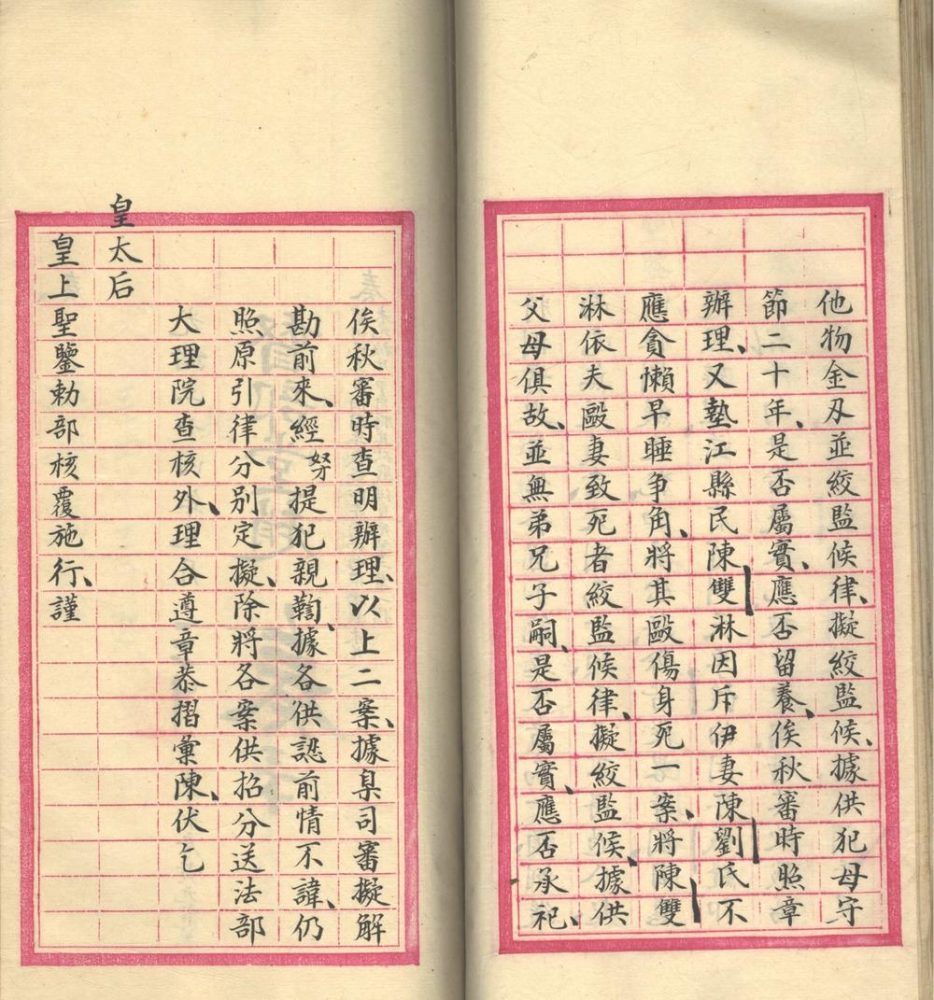 他物金刃並絞監候律、擬絞監候、據供犯母守
節二十年、是否屬實、應否留養、俟秋審時照章
辦理、又墊江縣民陳雙淋因斥伊妻陳劉氏不
應貪懶早睡爭角、將其毆傷身死一案、將陳雙
淋依夫毆妻致死者絞監候律、擬絞監候、據供
父母俱故、並無弟兄子嗣、是否屬實、應否承祀、
俟秋審時查明辦理、以上二案、據臬司審擬解
勘前來、經奴才提犯親鞫、據各供認前情不諱、仍
照原引律分別定擬、除將各案供招分送法部
大理院查核外、理合遵章恭摺彙陳、伏乞
皇太后
皇上聖鑒勅部核覆施行、謹